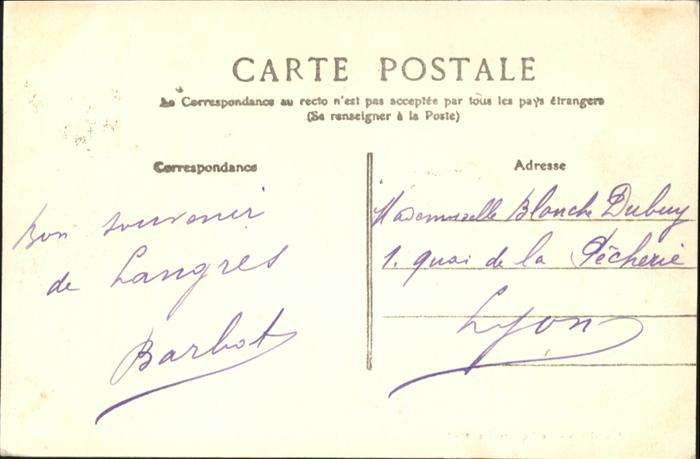 CARTE POSTALE
La Correspondance au recto n'est pas acceptée par tous les pays étrangers
(Se renseigner à la Poste)
Correspondance
Bon souvenir
de Langres
Barbot
Adresse
Mademoiselle Blanche Dubuy
1. quai de la Pêcherie
Lyon